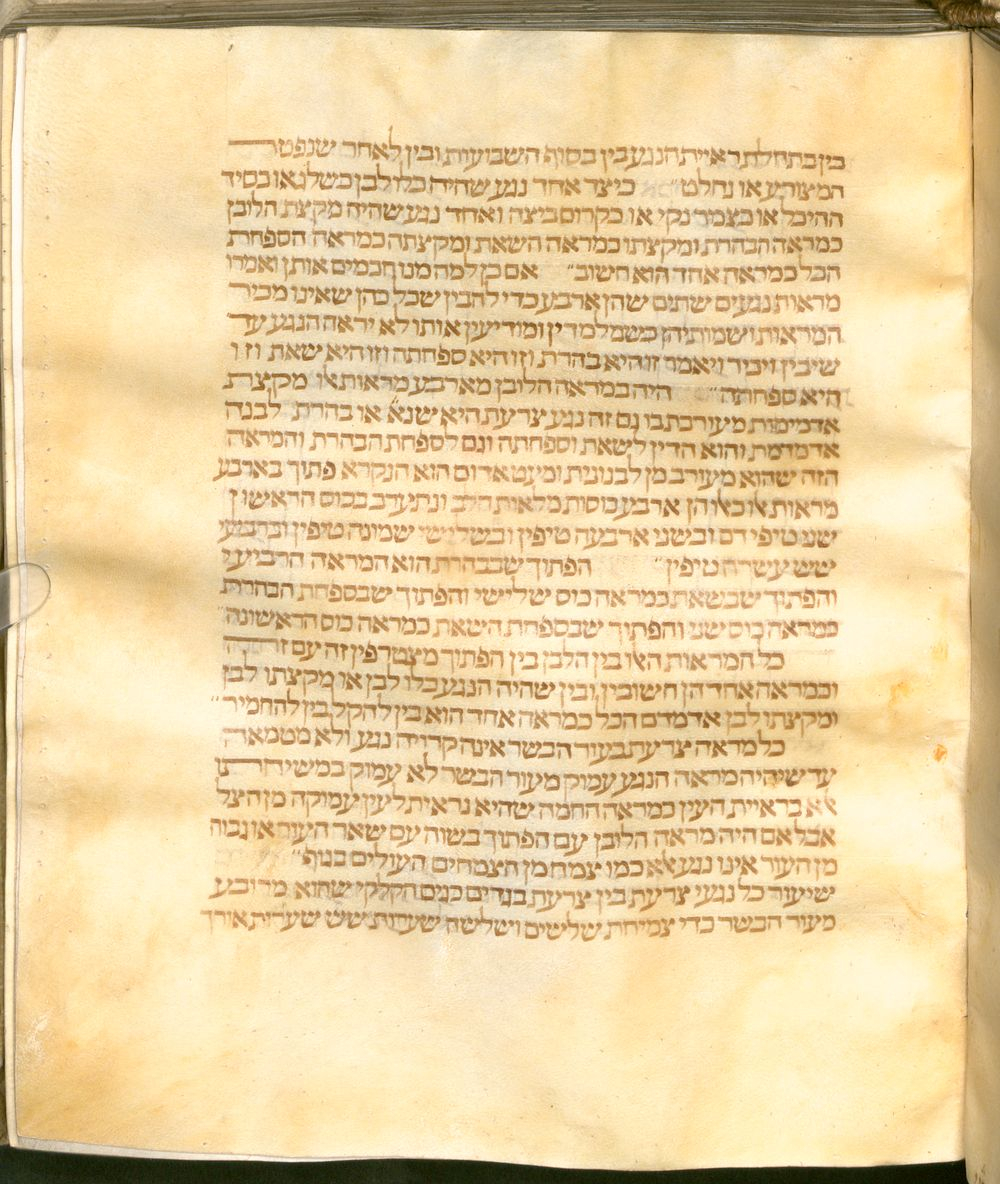 בין בתחלת ראיית הנגע בין בסוף השבועות ובין לאחר שנפטר
המצורע או נחלט״ כיצד אחד נגע שהיה כלו לבן כשלג או כסיד
ההיכל או כצמר נקי או כקרום ביצה ואחד נגע שהיה מקצת הלובן
כמראה הבהרת ומקצתו כמראה השאת ומקצתה כמראה הספחת
הכל כמראה אחד הוא חשוב״ אם כן למה מנו חכמים אותן ואמרו
מראות נגעים שתים שהן ארבע כדי להבין שכל כהן שאינו מכיר
המראות ושמותיהן כשמלמדין ומודיעין אותו לא יראה הנגע עד
שיבין ויכיר ויאמר זו היא בהרת וזו היא ספחתה וזו היא שאת וזו
היא ספחתה״ היה במראה הלובן מארבע מראות אלו מקצת
אדמימות מעורבת בו גם זה נגע צרעת היא שנא׳ או בהרת לבנה
אדמדמת והוא הדין לשאת וספחתה וגם לספחת הבהרת והמראה
הזה שהוא מעורב מן לבנונית ומעט אדום הוא הנקרא פתוך בארבע
מראות אלו כאלו הן ארבע כוסות מלאות חלב ונתערב בכוס הראשון
שני טיפי דם ובשני ארבעה טיפין ובשלישי שמונה טיפין וברביעי
שש עשרה טיפין״ הפתוך שבבהרת הוא המראה הרביעי
והפתוך שבשאת כמראה כוס שלישי והפתוך שבספחת הבהרת
כמראה כוס שני והפתוך שבספחת השאת כמראה כוס הראשונה״
כל המראות האלו בין הלבן בין הפתוך מצטרפין זה עם זה
וכמראה אחד הן חישובין ובין שהיה הנגע כלו לבן או מקצתו לבן
ומקצתו לבן אדמדם הכל כמראה אחד הוא בין להקל בין להחמיר״
כל מראה צרעת בעור הבשר אינה קרויה נגע ולא מטמאה
עד שיהיה מראה הנגע עמוק מעור הבשר לא עמוק במשישתו
אלא בראיית העין כמראה החמה שהיא נראית לעין עמוקה מן הצל
אבל אם היה מראה הלובן עם הפתוך בשוה עם שאר העור או גבוה
מן העור אינו נגע אלא כמו צמח מן הצמחים העולים בגוף״
שיעור כל נגעי צרעת בין צרעת בגדים כגים הקלקי שהוא מרובע
מעור הבשר כדי צמיחת שלשים ושלשה שערות שש שערות אורך